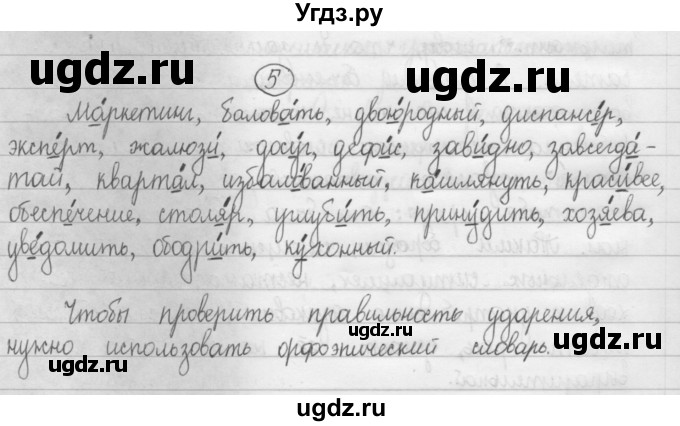 Угдз.ру
ugdz.ru ugdz.ru
5
Ма́ркетинг, балова́ть, двою́родный, диспансе́р,
экспе́рт, жалюзи́, досу́г, дефи́с, зави́дно, завсегда́-
тай, кварта́л, избало́ванный, ка́шлянуть, краси́вее,
обеспе́чение, столя́р, углуби́ть, прину́дить, хозя́ева,
уве́домить, ободри́ть, ку́хонный.
Чтобы проверить правильность ударения,
ugdz.ru ugdz.ru
нужно использовать орфоэпический словарь.
ugdz.ru ugdz.ru
ugdz.ru